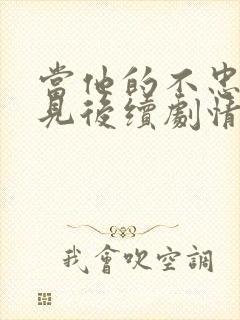 當他的不忠
見後續劇情
我會吹空調